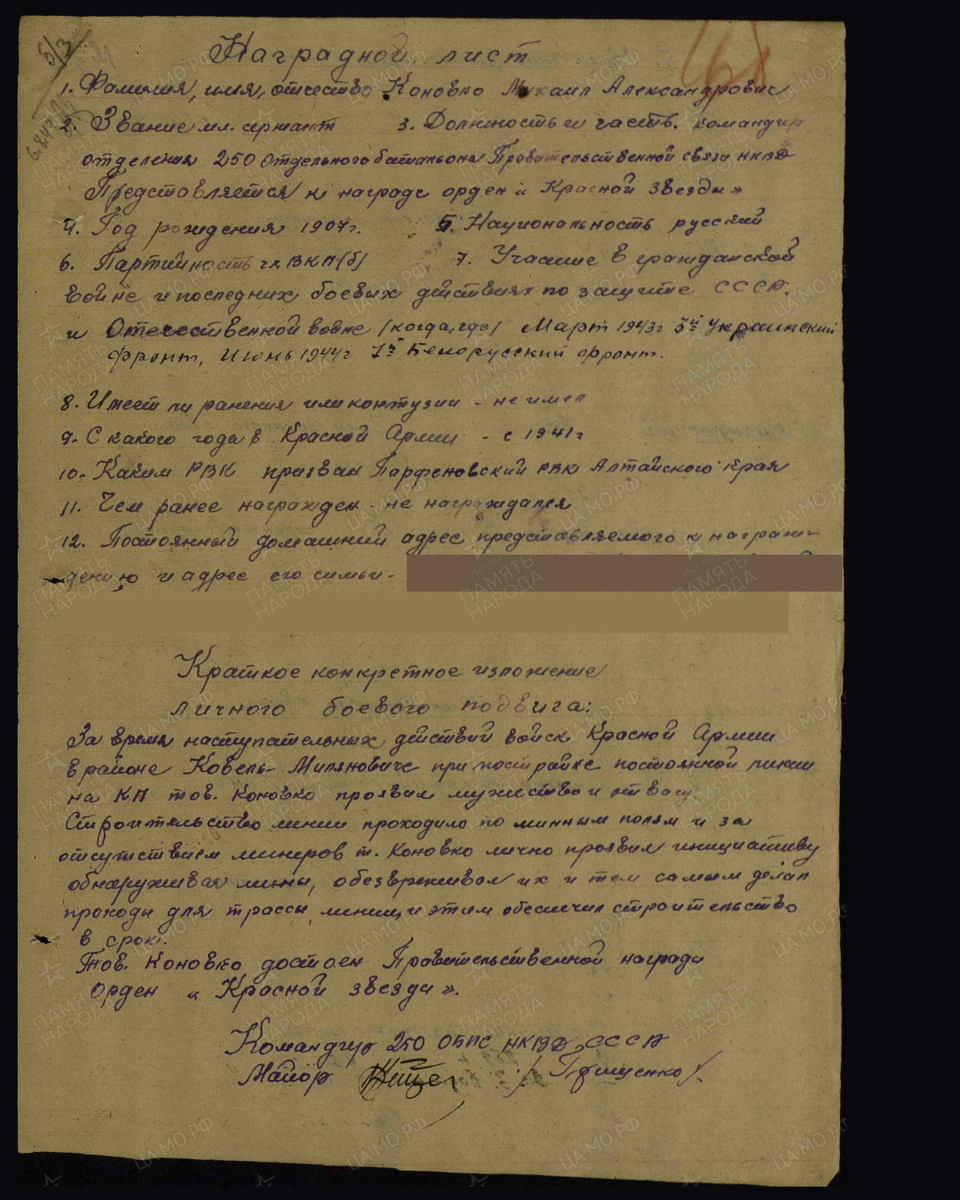 Наградной лист
1. Фамилия, имя, отчество Коновко Михаил Александрович
2. Звание мл. сержант 3. Должность и часть. командир
отделения 250 Отдельного батальона Правительственной связи НКВД
Представляется к награде орден „Красной звезды»
4. Год рождения 1907 г. 5. Национальность русский
6. Партийность чл ВКП(б) 7. Участие в гражданской
войне и последних боевых действиях по защите СССР.
и Отечественной войне (когда, где) Март 1943 г Украинский
фронт, Июнь 1944 г 1й Белорусский фронт.
8. Имеет ли ранения или контузии - не имел
9. С какого года в Красной Армии - с 1941 г
10. Каким РВК призван Парфеновский РВК Алтайского края
11. Чем ранее награжден - не награждался
12. Постоянный домашний адрес представляемого к награж-
дению и адрес его семьи -
Краткое конкретное изложение
личного боевого подвига:
За время наступательных действий войск Красной Армии
в районе Ковель - Миляновиче при постройке постоянной линии
на КП тов. Коновко проявил мужество и отвагу.
Строительство линии проходило по минным полям и за
отсутствием минеров т. Коновко лично проявил инициативу
обнаруживая мины, обезвреживал их и тем самым делал
проходы для трассы линии, и этим обеспечил строительство
в срок.
Тов. Коновко достоен Правительственной награды
орден „Красной звезды».
Командир 250 ОБПС НКВД СССР
Майор /Грищенко/.
ПАМЯТЬ НАРОДА
ЦАМО.РФ